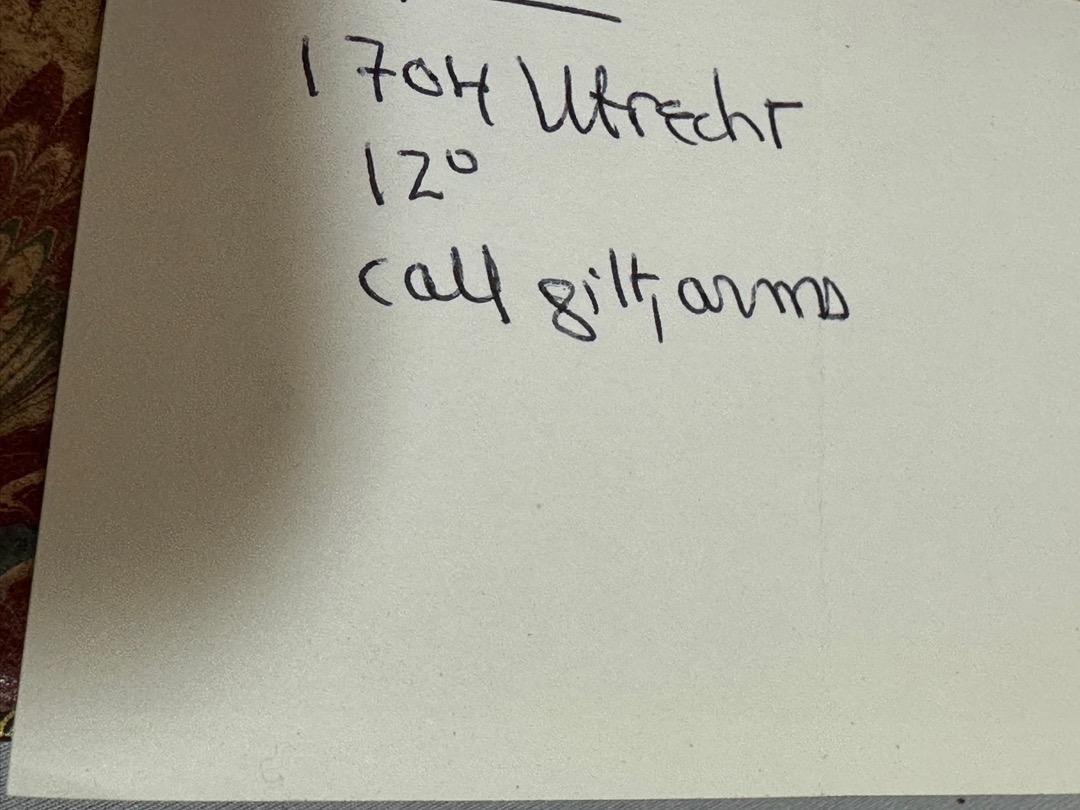 1704 Utrecht
12°
calf gilt, arms